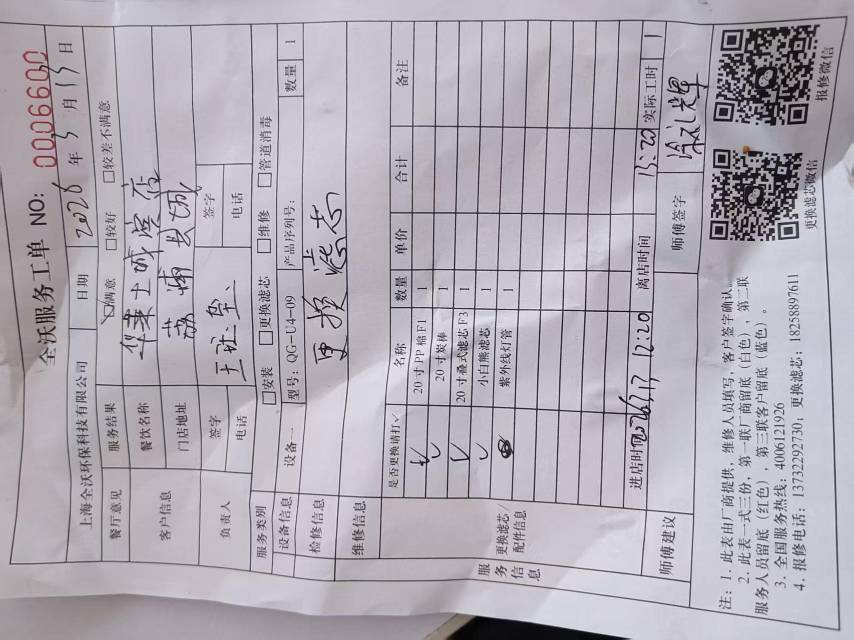 全沃服务工单 NO: 0006600
上海全沃环保科技有限公司 日期 2026 年 3 月 13 日
餐厅意见 服务结果 ☑满意 □较好 □较差不满意
客户信息 餐饮名称
门店地址
负责人 签字 签字
电话 电话
服务类别 □安装 □更换滤芯 □维修 □管道消毒
设备信息 设备一 型号: QG-U4-09 产品序列号: 数量 1
检修信息 更换滤芯
维修信息
服务信息 更换滤芯/配件信息 是否更换请打✓ 名称 数量 单价 合计 备注
✓ 20寸PP棉F1 1
✓ 20寸炭棒 1
✓ 20寸叠式滤芯F3 1
✓ 小白熊滤芯 1
紫外线灯管 1
进店时间 12:20 离店时间 13:20 实际工时 1
师傅建议 师傅签字
注: 1、此表由厂商提供, 维修人员填写, 客户签字确认。
2、此表一式三份, 第一联厂商留底(白色), 第二联
服务人员留底(红色), 第三联客户留底(蓝色)。
3、全国服务热线: 4006121926
4、报修电话: 13732292730, 更换滤芯: 18258897611
更换滤芯微信 报修微信